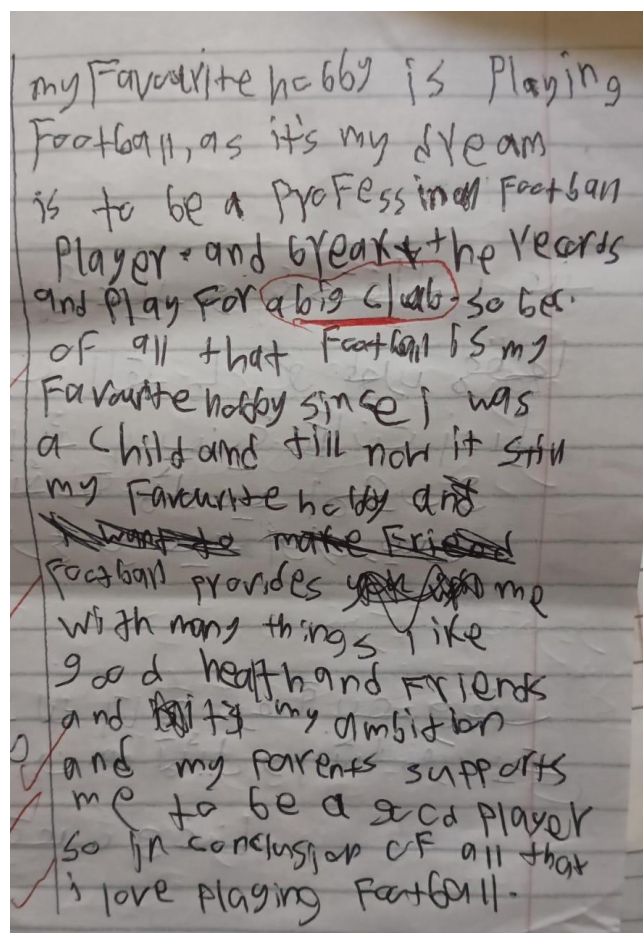 my Favourite hobby is Playing
Football, as it's my dream
is to be a ProFessinal Football
Player. and break the records
and Play For a big club. so bec.
of all that Football is my
Favourite hobby sinse i was
a child and till now it still
my Favourite hobby and
i want to make Friend
Football provides me
with many things like
good health and Friends
and it's my ambition
and my parents supports
me to be a good player
so in conclusion of all that
i love playing Football.